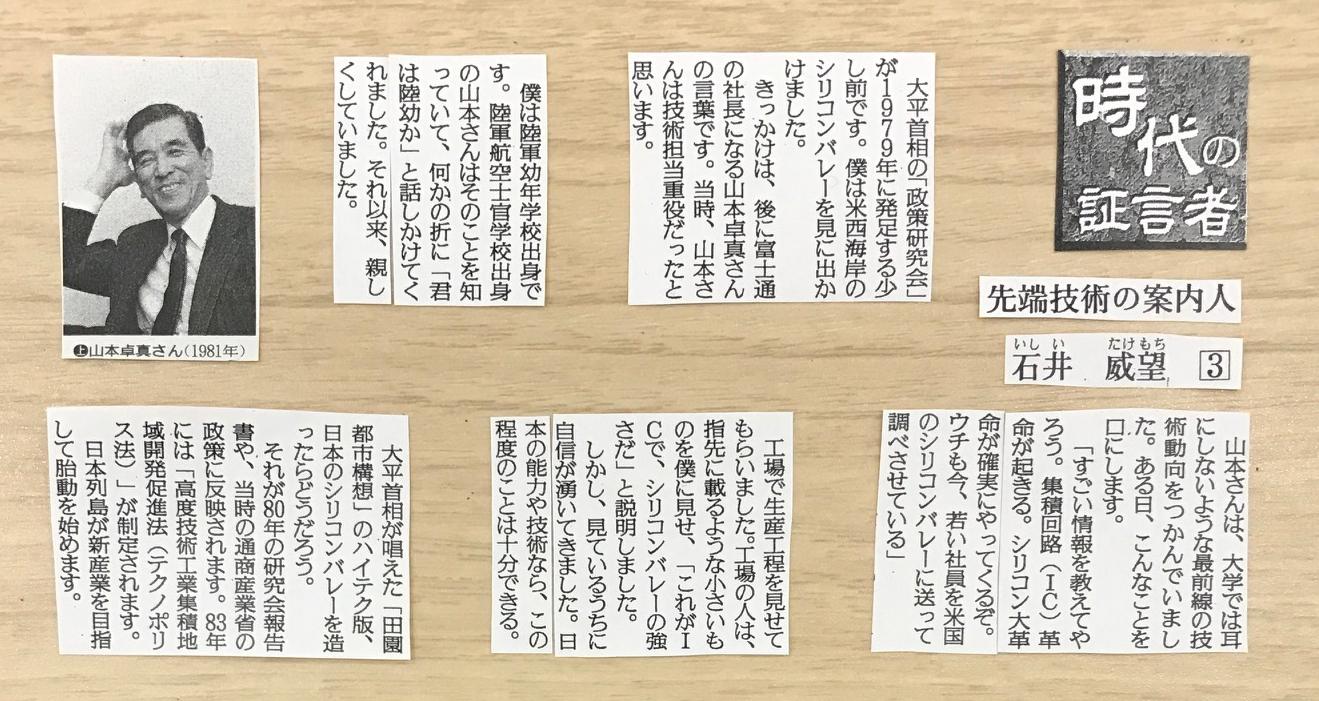 時代の
証言者
先端技術の案内人
いしい たけもち
石井 威望 3
大平首相の「政策研究会」
が1979年に発足する少
し前です。僕は米西海岸の
シリコンバレーを見に出か
けました。
きっかけは、後に富士通
の社長になる山本卓真さん
の言葉です。当時、山本さ
んは技術担当重役だったと
思います。
僕は陸軍幼年学校出身で
す。陸軍航空士官学校出身
の山本さんはそのことを知
っていて、何かの折に「君
は陸幼か」と話しかけてく
れました。それ以来、親し
くしていました。
上山本卓真さん(1981年)
山本さんは、大学では耳
にしないような最前線の技
術動向をつかんでいまし
た。ある日、こんなことを
口にします。
「すごい情報を教えてや
ろう。集積回路(IC)革
命が起きる。シリコン大革
命が確実にやってくるぞ。
ウチも今、若い社員を米国
のシリコンバレーに送って
調べさせている」
工場で生産工程を見せて
もらいました。工場の人は、
指先に載るような小さいも
のを僕に見せ、「これがI
Cで、シリコンバレーの強
さだ」と説明しました。
しかし、見ているうちに
自信が湧いてきました。日
本の能力や技術なら、この
程度のことは十分できる。
大平首相が唱えた「田園
都市構想」のハイテク版、
日本のシリコンバレーを造
ったらどうだろう。
それが80年の研究会報告
書や、当時の通商産業省の
政策に反映されます。83年
には「高度技術工業集積地
域開発促進法(テクノポリ
ス法)」が制定されます。
日本列島が新産業を目指
して胎動を始めます。